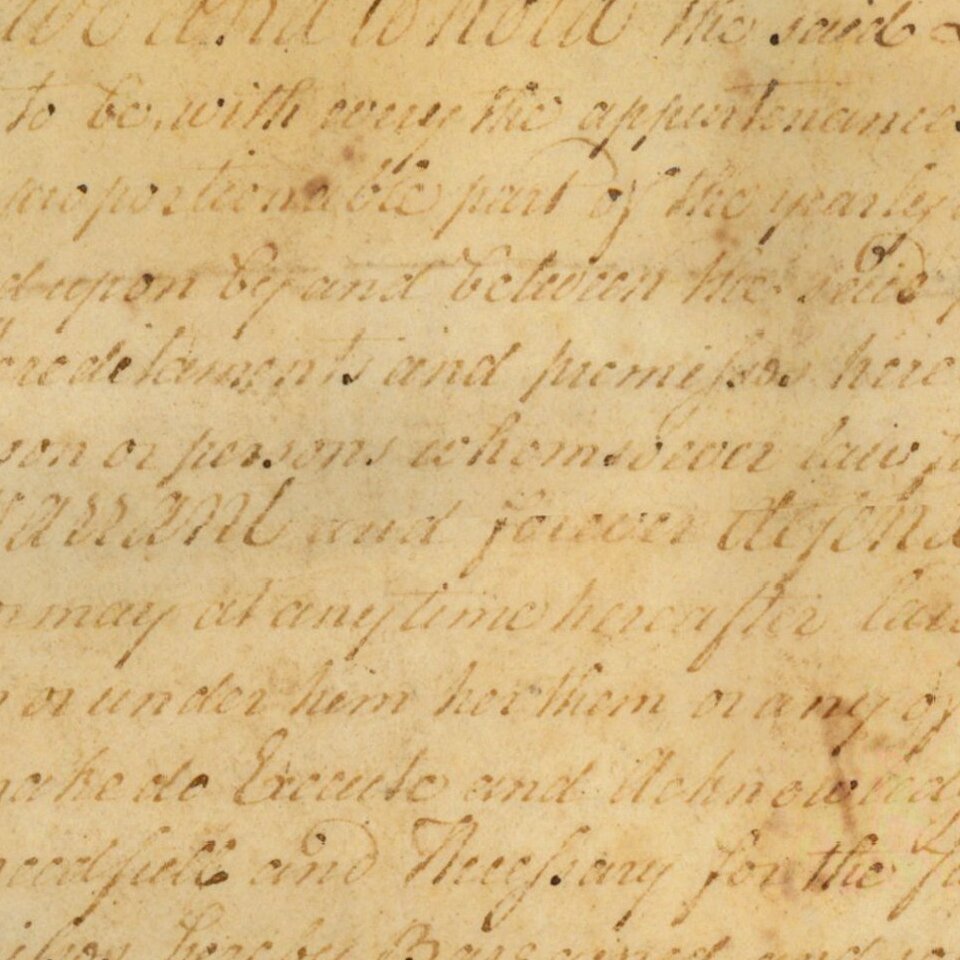 and to hold the said
to be, with every the appurtenances
proportionable part of the yearly
upon by and between the said
hereditaments and premisses here
son or persons whomsoever law
Warrant and forever Defend
may at any time hereafter law
or under him her them or any of
make do Execute and Acknowledg
needfull and Necessary for the fu
hereby Bargained and